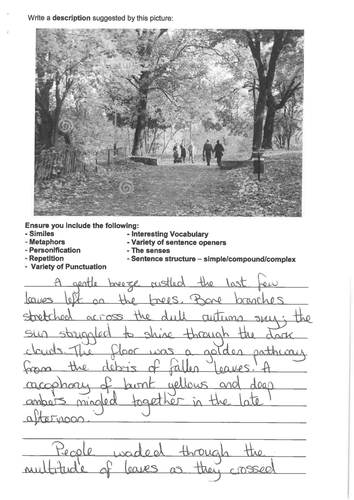 Write a description suggested by this picture:
Ensure you include the following:
- Similes
- Metaphors
- Personification
- Repetition
- Variety of Punctuation
- Interesting Vocabulary
- Variety of sentence openers
- The senses
- Sentence structure – simple/compound/complex
A gentle breeze rustled the last few
leaves left on the trees. Bare branches
stretched across the dull autumn sky; the
sun struggled to shine through the dark
clouds. The floor was a golden pathway
from the debris of fallen leaves. A
cacophony of burnt yellows and deep
ambers mingled together in the late
afternoon.
People waded through the
multitude of leaves as they crossed